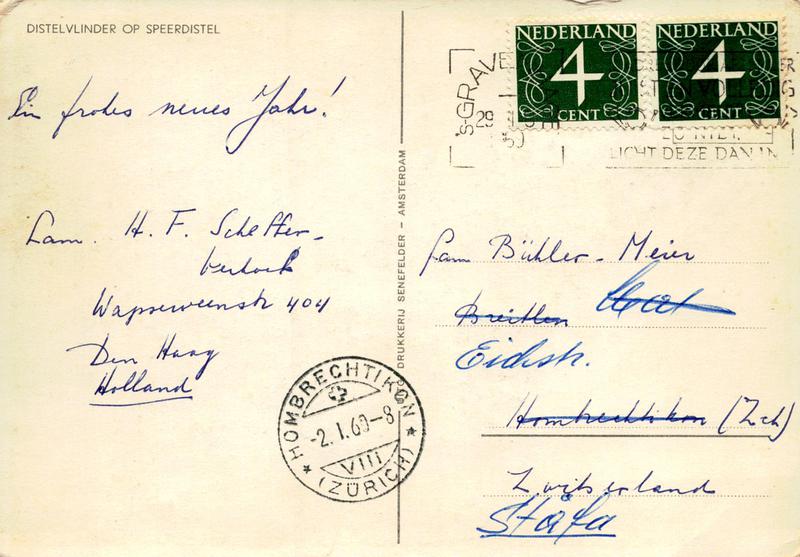 DISTELVLINDER OP SPEERDISTEL
Ein frohes neues Jahr!
Fam. H. F. Scheffer-
Wapserveenstr 404
Den Haag
Holland
DRUKKERIJ SENEFELDER - AMSTERDAM
NEDERLAND
4
CENT
NEDERLAND
4
CENT
's-GRAVE
29
LICHT DEZE DAN IN
Fam Bühler-Meier
Breitlen
Eichstr.
Hombrechtikon (Zch)
Zwitserland
Stäfa
HOMBRECHTIKON
-2.1.60-8
VIII
(ZÜRICH)